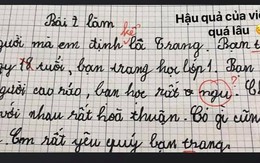 Hậu quả của việ
quá lâu
Bài 7 làm
kể
gười mà em định là Trang. Bạn t
18 tuổi, bạn trang học lớp 1. Bạn
gười cao ráo, bạn học rất ngu. Ch
với nhau rất hoà thuận. Có gì cũn
Em rất yêu quý bạn trang.